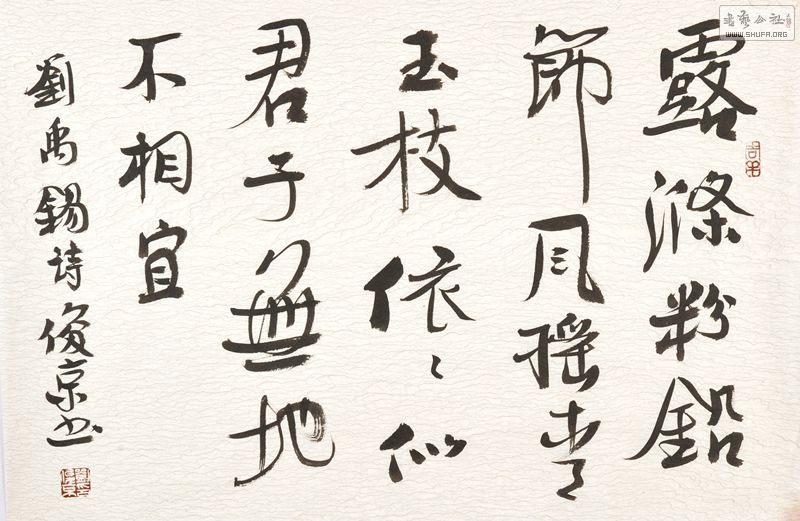 露滌粉鉛
節风摇青
玉枝依〻似
君子無地
不相宜
劉禹錫诗俊京书
書藝公社
WWW.SHUFA.ORG